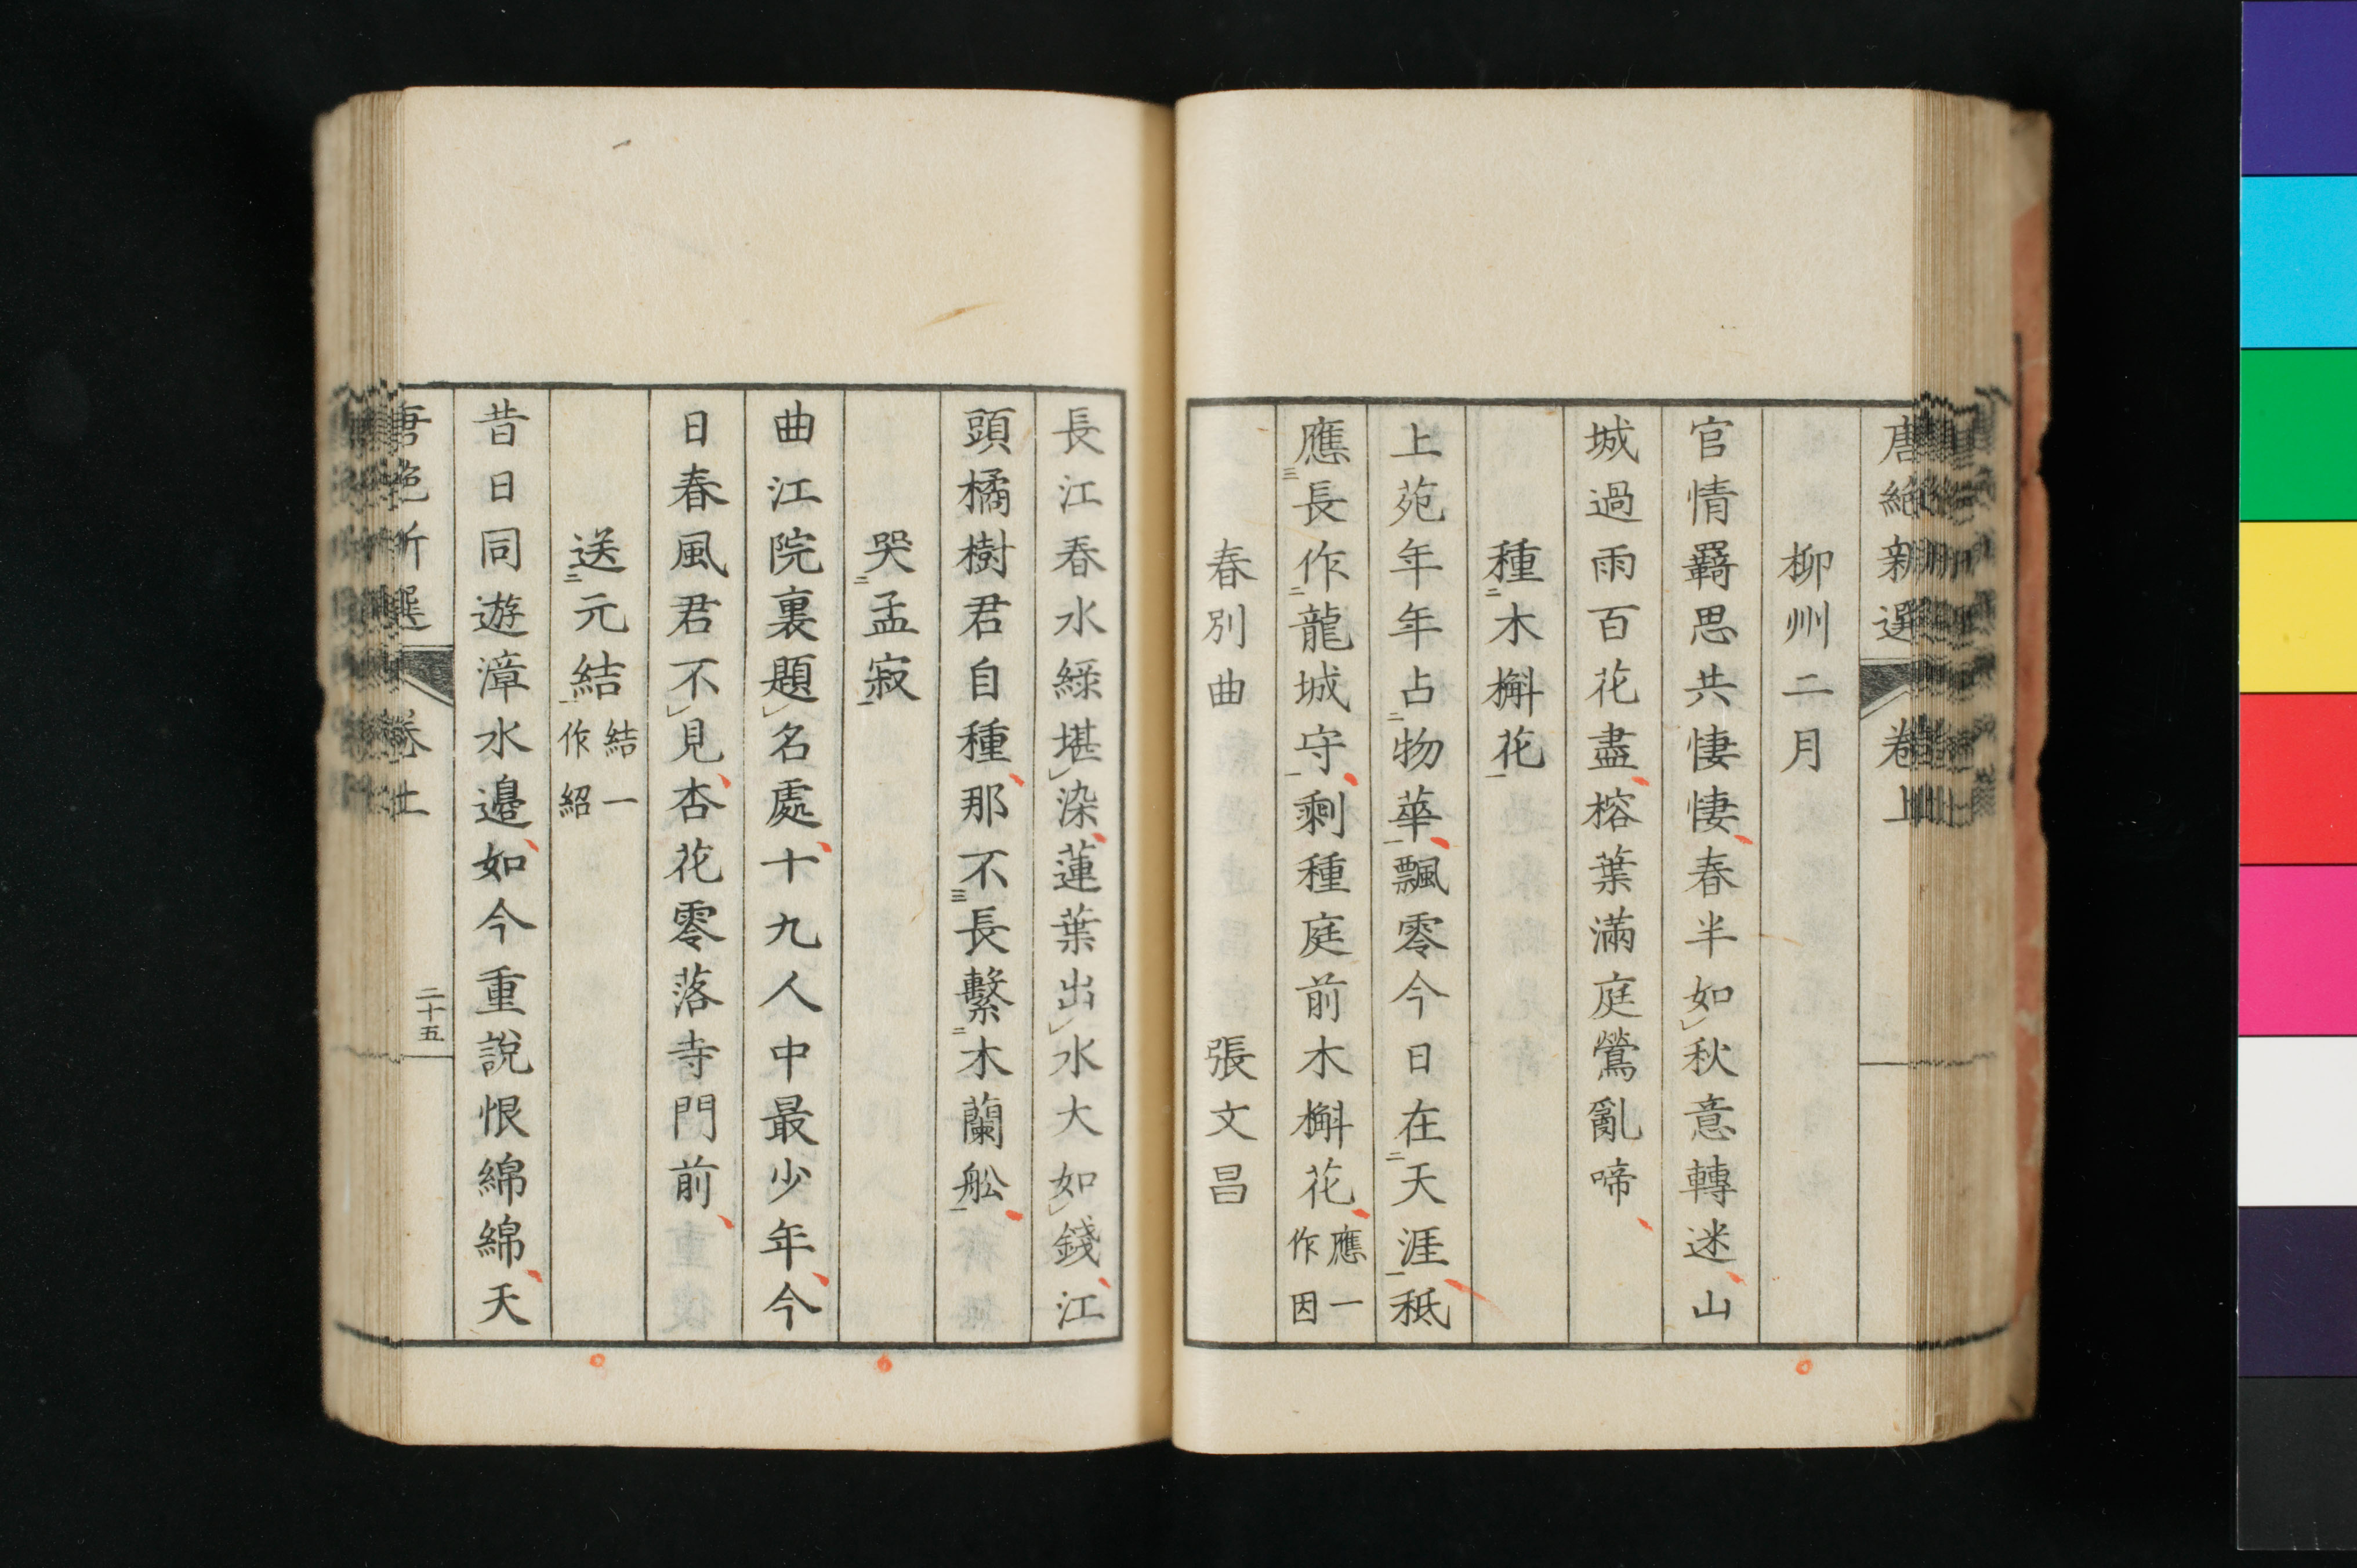 唐絕新選 卷上
柳州二月
官情羇思共悽悽春半如秋意轉迷山
城過雨百花盡榕葉滿庭鶯亂啼
種二木槲花一
上苑年年占二物華一飄零今日在二天涯一秪
應三長作二龍城守一剩種庭前木槲花應一作因
春別曲 張文昌
長江春水綠堪レ染蓮葉出レ水大如レ錢江
頭橘樹君自種那不三長繫二木蘭舩一
哭二孟寂一
曲江院裏題レ名處十九人中最少年今
日春風君不レ見杏花零落寺門前
送二元結一結一作紹
昔日同遊漳水邉如今重說恨綿綿天
唐絕新選 卷上 二十五